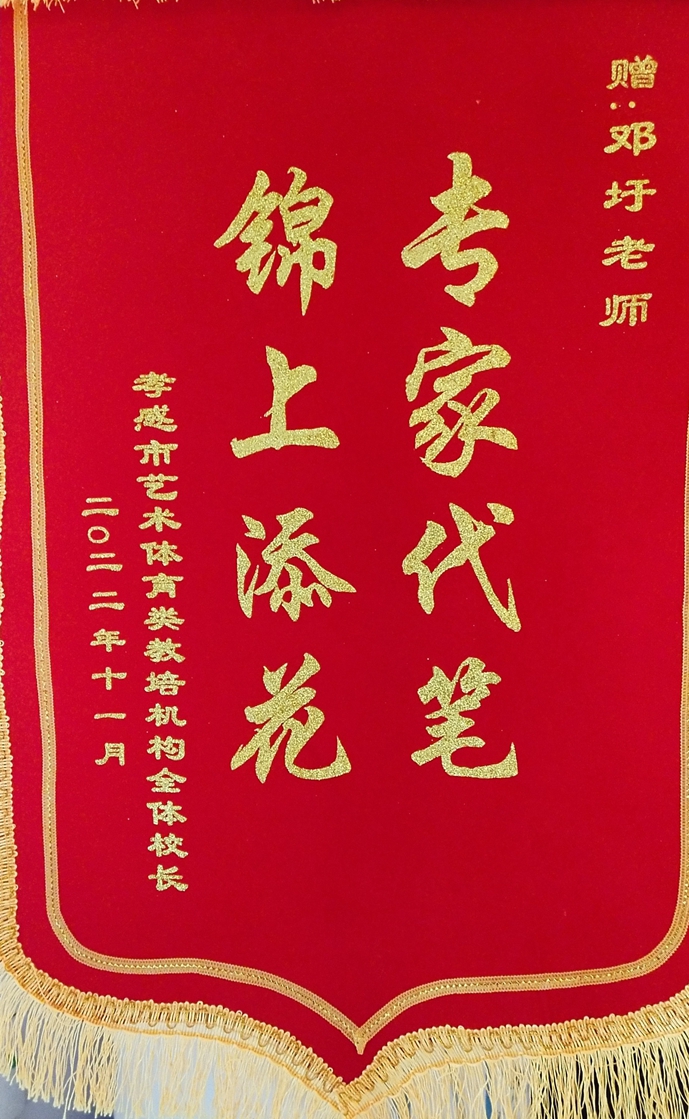 赠：邓圩老师
专家代笔
锦上添花
孝感市艺术体育类教培机构全体校长
二〇二二年十一月